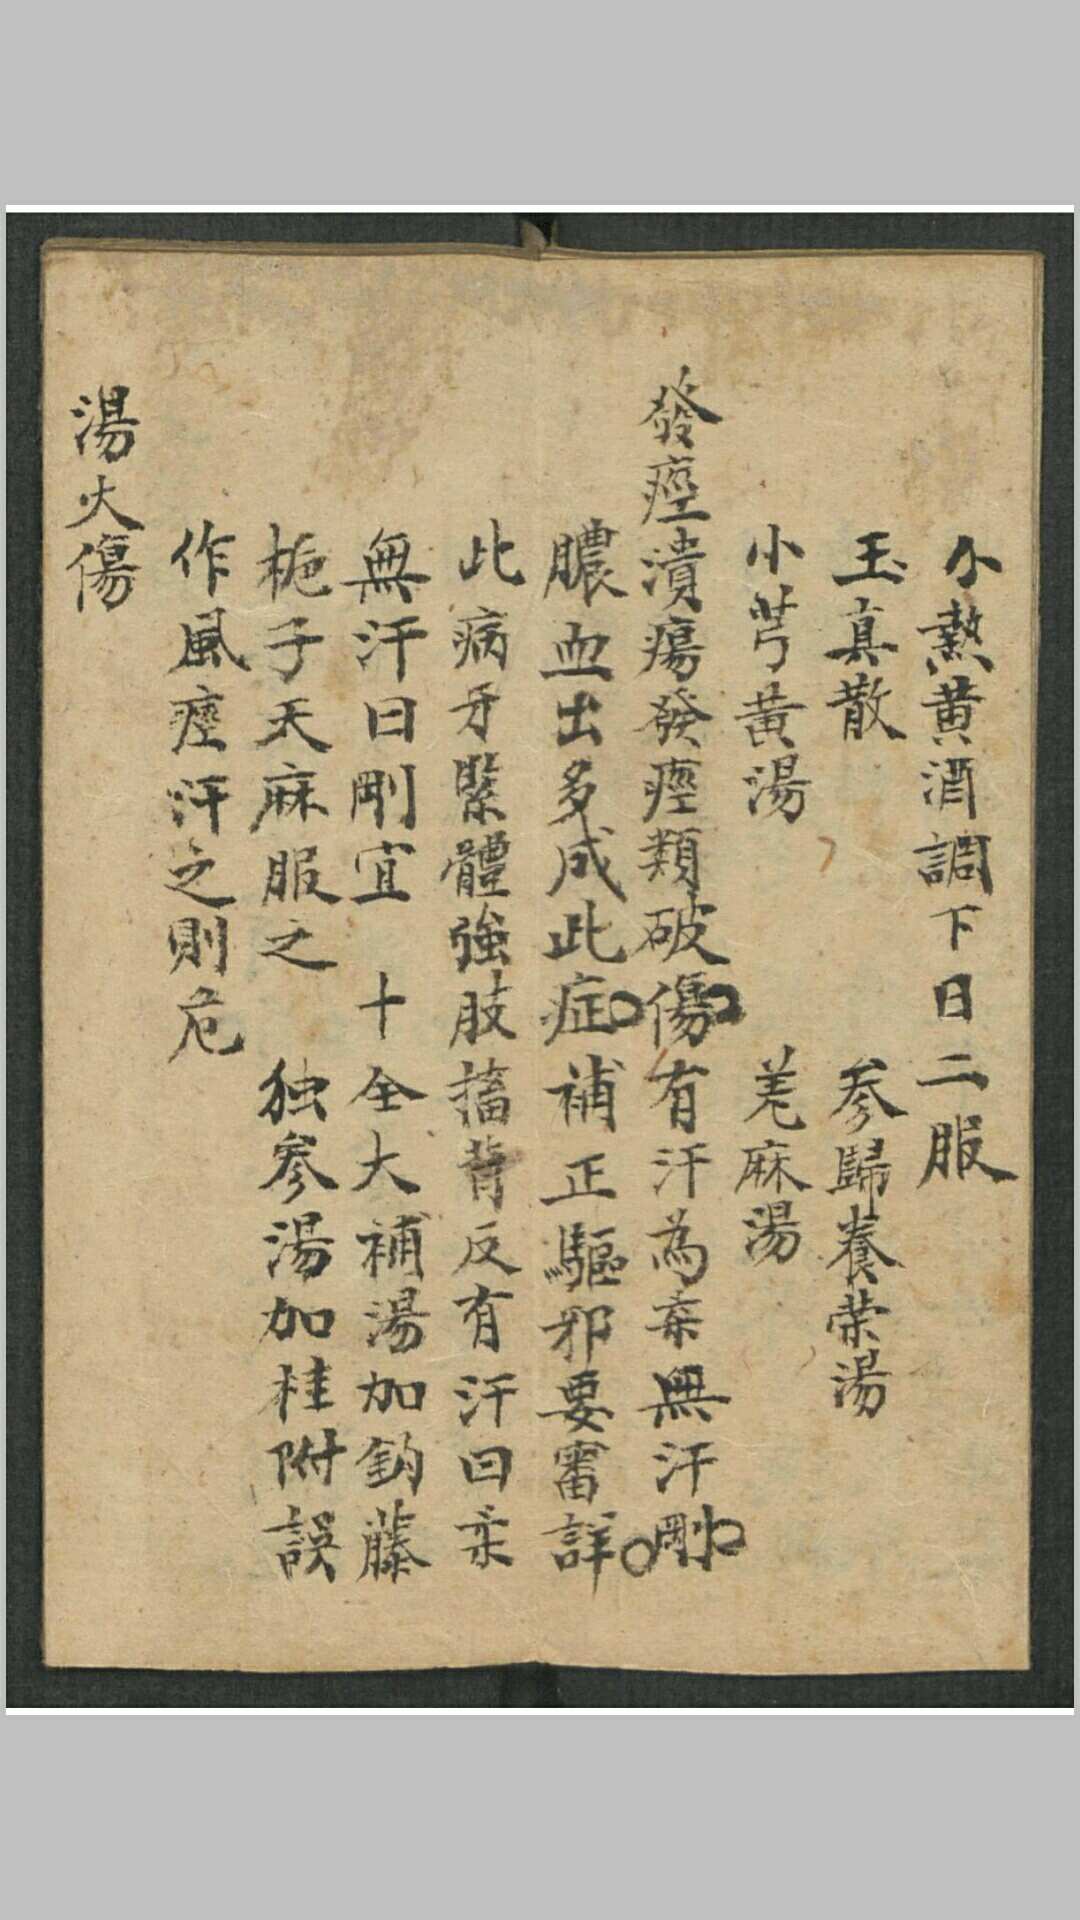 小熱黄酒調下日二服
玉真散 参歸養荣湯
小芎黄湯 羌麻湯
發痙潰瘍發痙類破傷有汗為柔無汗剛
膿血出多成此症補正驅邪要審詳
此病牙緊體強肢搐背反有汗曰柔
無汗曰剛宜 十全大補湯加鈎藤
栀子天麻服之 独参湯加桂附誤
作風痙汗之則危
湯火傷